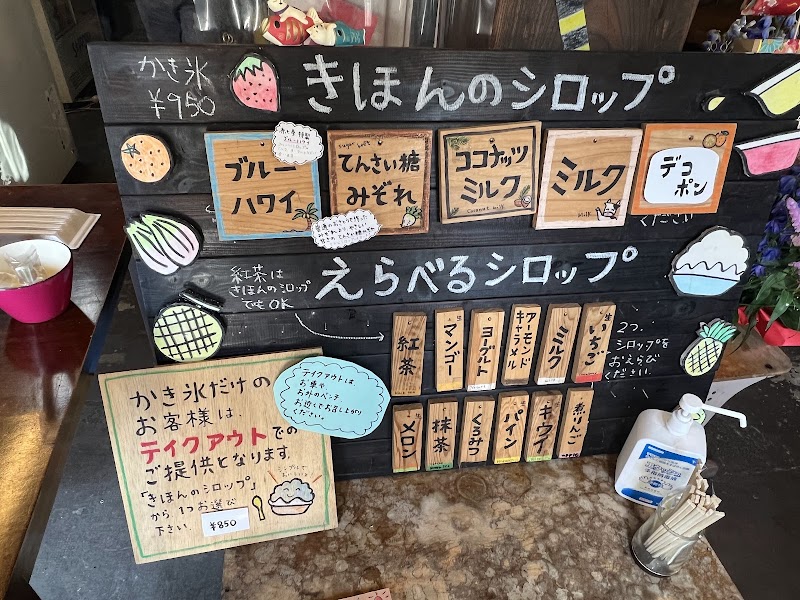 かき氷
¥950
きほんのシロップ
ブルー
ハワイ
てんさい糖
みぞれ
ココナッツ
ミルク
Coconut milk
ミルク
milk
デコ
ポン
ください
紅茶は
きほんのシロップ
でもOK
えらべるシロップ
紅茶
生
マンゴー
ヨーグルト
アーモンド
キャラメル
ミルク
生
いちご
2つ
シロップを
おえらび
ください.
メロン
抹茶
くろみつ
パイン
キウイ
煮りんご
かき氷だけの
お客様は、
テイクアウトでの
ご提供となります。
「きほんのシロップ」
から1つお選び
下さい。
¥850
テイクアウトは、
お車や
お外のベンチ、
お近くでお召し上がり
ください。